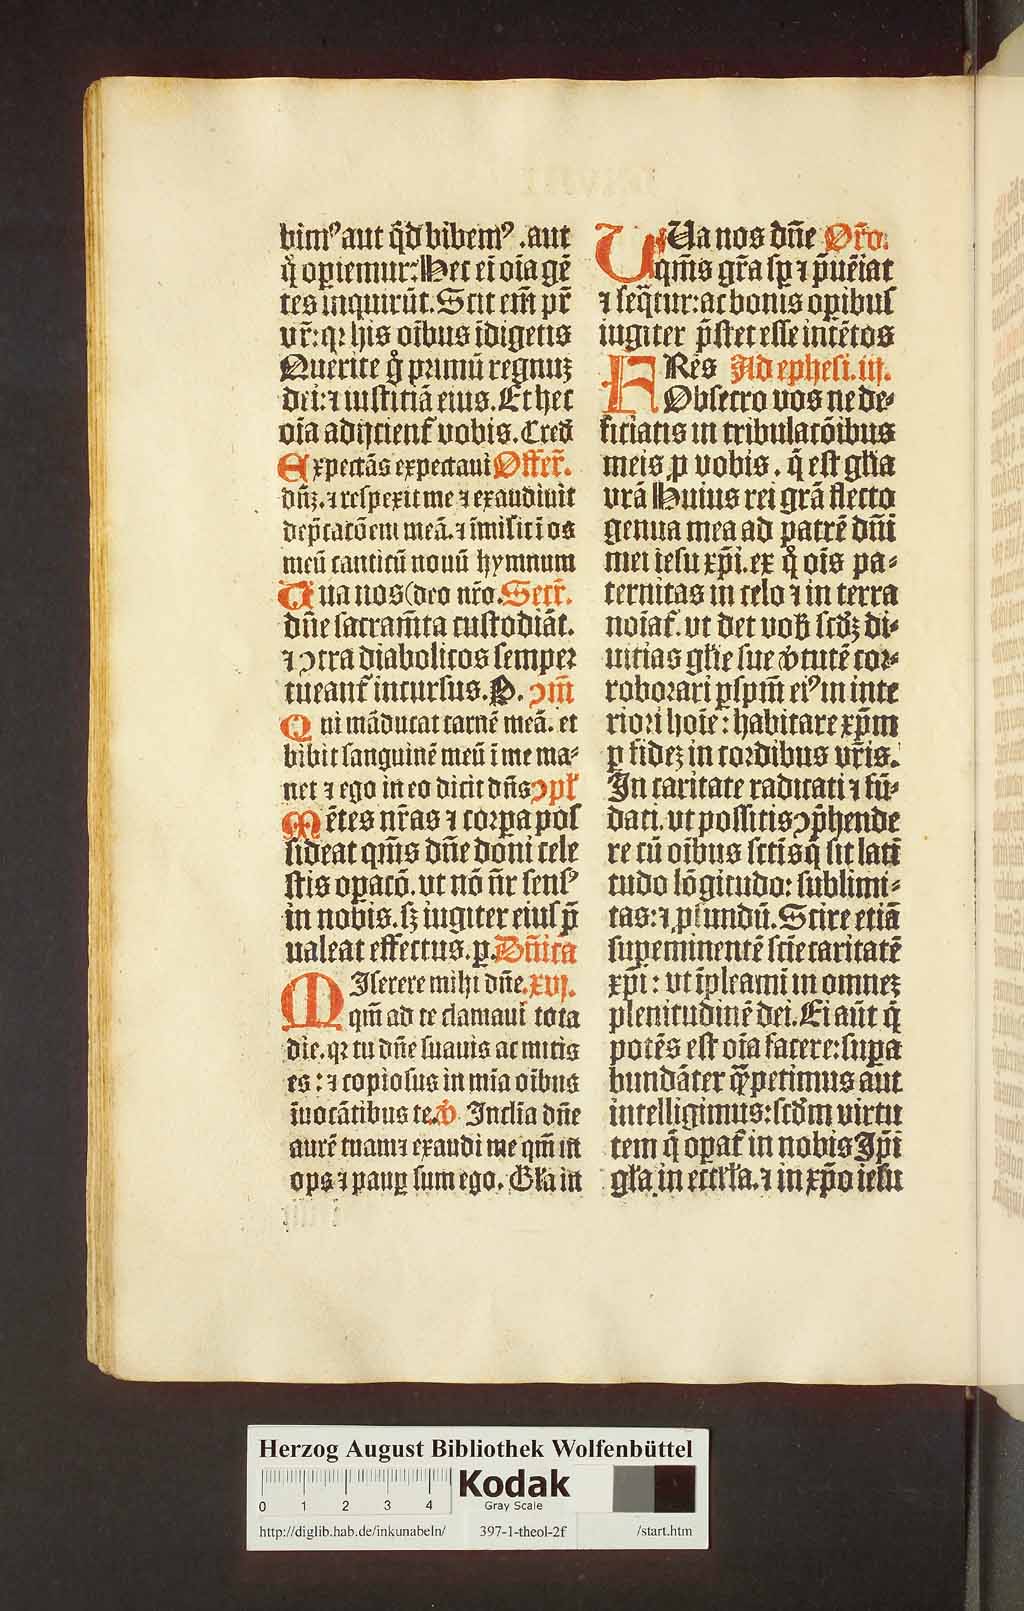 bimꝰ aut q̄d bibemꝰ .aut
qͦ opiemur: Hec ei oīa gē
tes inquirūt. Scit em̄ pr̄
vr̄: qꝛ his oībus īdigetis
Querite gͦ primū regnuꝫ
dei: ⁊ iusticiā eius. Et hec
oīa adijcienꝉ vobis. Cred̄
Expectās expectaui Offer̄.
dn̄ꝫ. ⁊ respexit me ⁊ exaudiuit
dep̄catōem meā. ⁊ īmisit ī os
meū canticū nouū hymnum
Tua nos (deo nr̄o. Secr̄.
dn̄e sacram̄ta custodiāt.
⁊ ↄtra diabolicos semper
tueanꝉ incursus. P. ↄm̄
Qui māducat carnē meā. et
bibit sanguinē meū ī me ma-
net ⁊ ego in eo dicit dn̄s ↄpꝉ
Mētes nr̄as ⁊ corpa pos
sideat qm̄s dn̄e doni cele
stis opacō. vt nō nr̄ sensꝰ
in nobis. sꝫ iugiter eius p̄
ualeat effectus. ꝑ. Dn̄ica
MIserere mihi dn̄e. xvj.
qm̄ ad te clamaui tota
die. qꝛ tu dn̄e suauis ac mitis
es: ⁊ copiosus in mīa oībus
īuocātibus te. v̊ Inclīa dn̄e
aurē tuam ⁊ exaudi me qm̄ in
ops ⁊ pauꝑ sum ego. Gꝉa in
TUa nos dn̄e Or̄o.
qm̄s gr̄a sꝑ ⁊ p̄ueniat
⁊ seq̄tur: ac bonis opibus
iugiter p̄stet esse intētos
FRēs Ad ephesi. iij.
Obsecro vos ne de-
ficiatis in tribulatōibus
meis ꝓ vobis. q̄ est gꝉia
vrā Huius rei grā flecto
genua mea ad patrē dn̄i
mei iesu xp̄i. ex qͦ oīs pa-
ternitas in celo ⁊ in terra
noīaꝉ. vt det vob̄ scd̄ꝫ di-
uitias gꝉie sue v̊tutē cor-
roborari ꝑ spm̄ eiꝰ in inte
riori hoīe: habitare xp̄m
ꝑ fideꝫ in cordibus vr̄is.
In caritate radicati ⁊ fū-
dati. vt possitis ↄp̄hende
re cū oībus sctīs q̄ sit lati
tudo lōgitudo: sublimi-
tas: ⁊ ꝓfundū. Scire etiā
supeminentē scīe caritatē
xp̄i: vt īpleami in omneꝫ
plenitudinē dei. Ei aūt q̄
potēs est oīa facere: supa
bundāter q̄ petimus aut
intelligimus: scd̄m virtu
tem q̄ opaꝉ in nobis Ip̄i
gꝉa in eccꝉia. ⁊ in xp̄o iesu
Herzog August Bibliothek Wolfenbüttel
Kodak
Gray Scale
0 1 2 3 4
http://diglib.hab.de/inkunabeln/ 397-1-theol-2f /start.htm